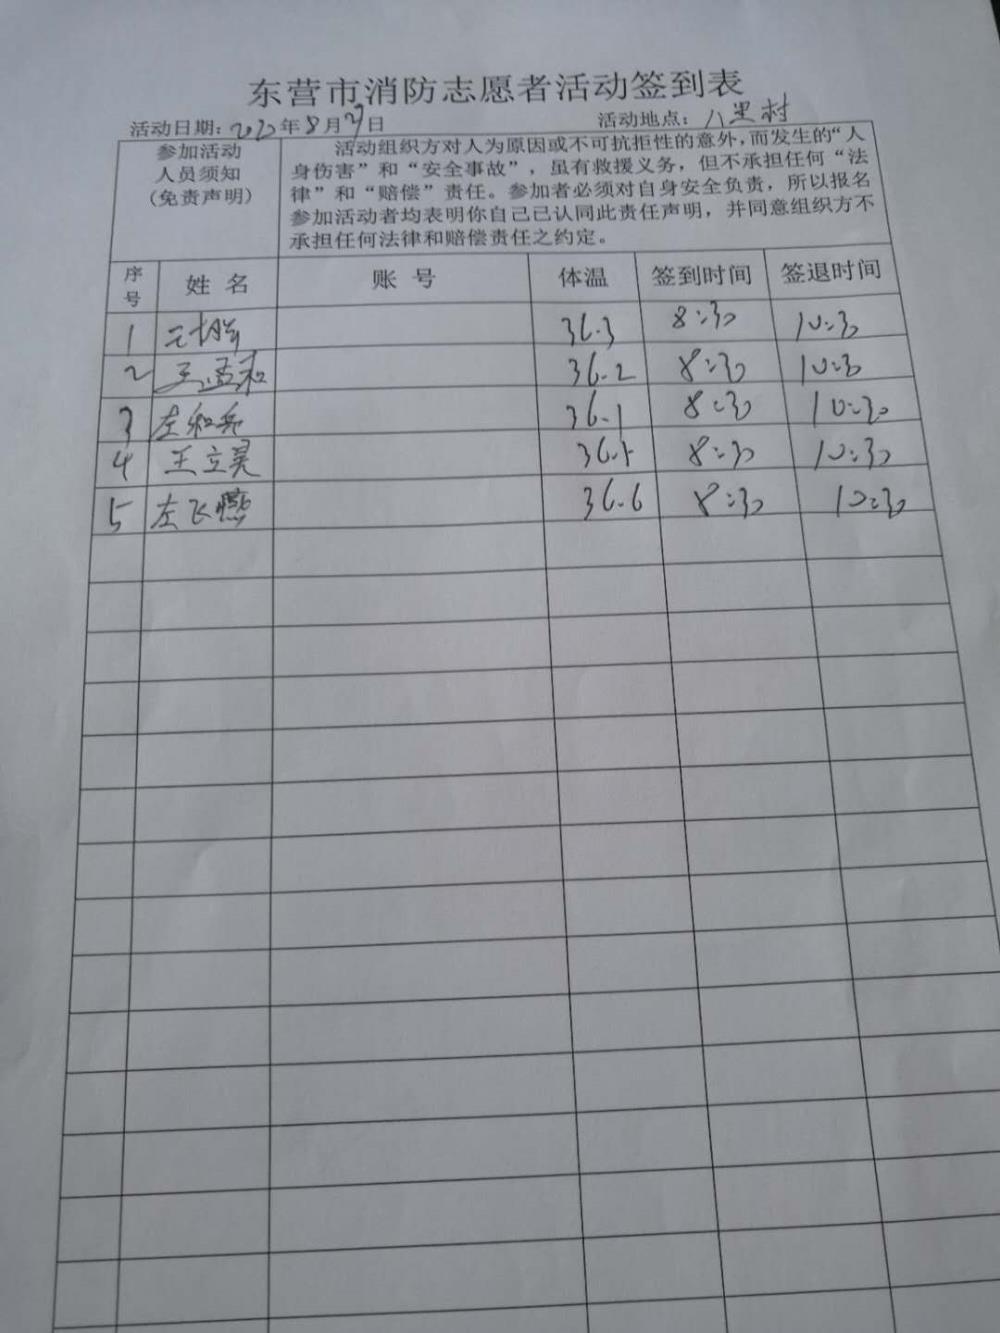 东营市消防志愿者活动签到表
活动日期：2020年8月29日 活动地点：八里村
参加活动
人员须知
（免责声明）
活动组织方对人为原因或不可抗拒性的意外，而发生的“人
身伤害”和“安全事故”，虽有救援义务，但不承担任何“法
律”和“赔偿”责任。参加者必须对自身安全负责，所以报名
参加活动者均表明你自己已认同此责任声明，并同意组织方不
承担任何法律和赔偿责任之约定。
序号 姓 名 账 号 体温 签到时间 签退时间
1 36.3 8:30 10:30
2 王孟和 36.2 8:30 10:30
3 左和 36.1 8:30 10:30
4 王立昊 8:30 10:30
5 左飞燕 36.6 8:30 10:30